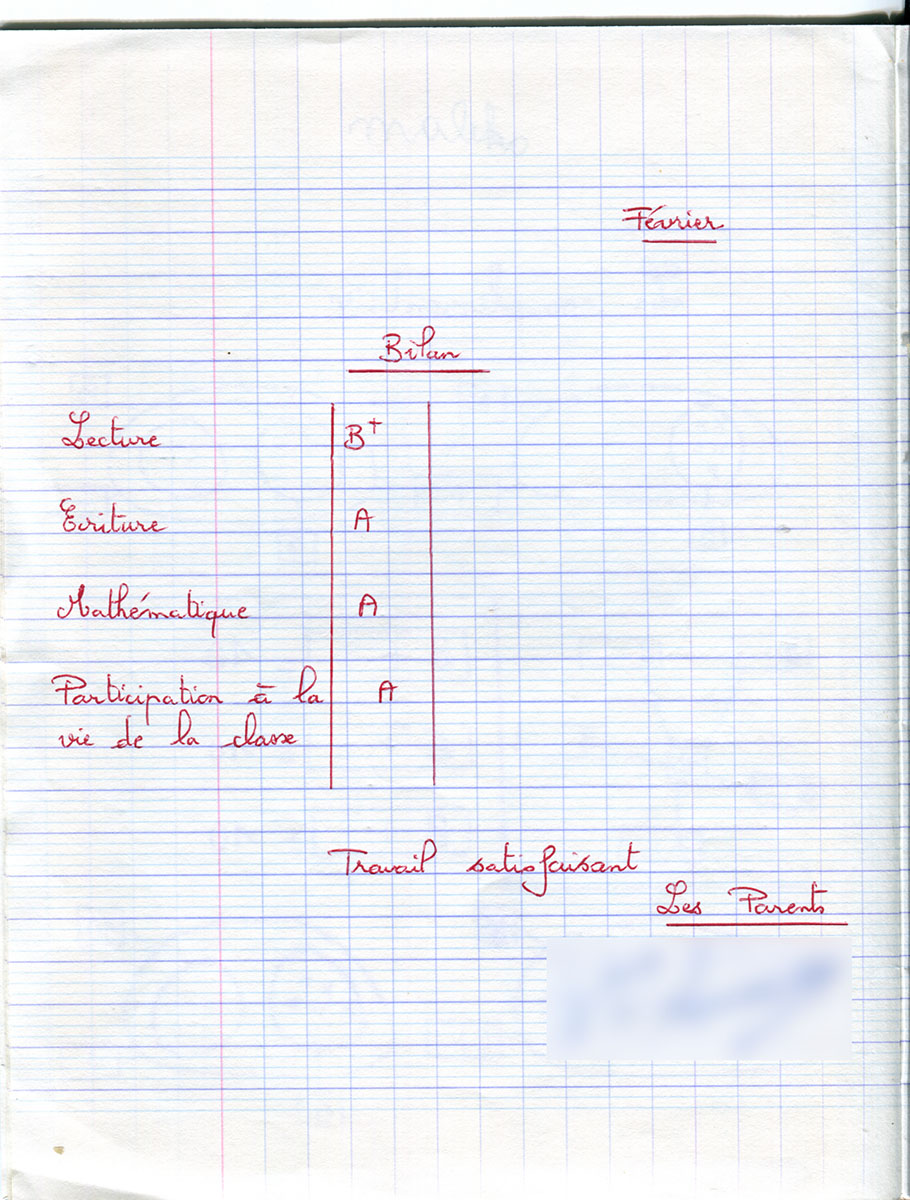 Février
Bilan
Lecture B+
Ecriture A
Mathématique A
Participation à la A
vie de la classe
Travail satisfaisant
Les Parents